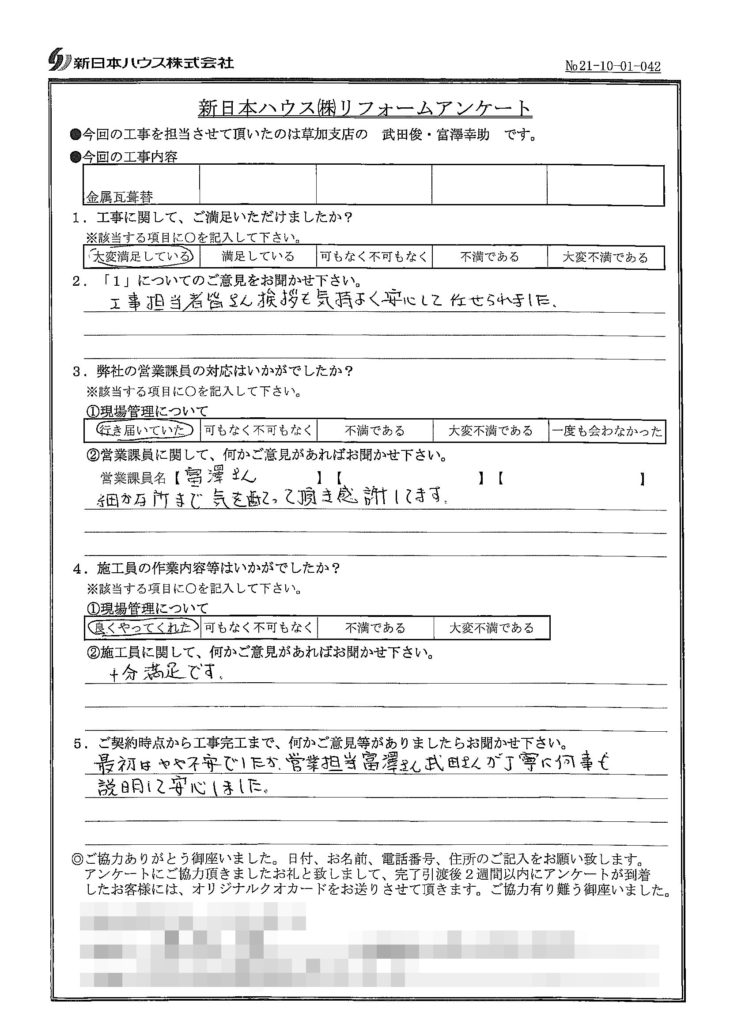 新日本ハウス株式会社
No21-10-01-042
新日本ハウス㈱リフォームアンケート
●今回の工事を担当させて頂いたのは草加支店の 武田俊・富澤幸助 です。
●今回の工事内容
金属瓦葺替
1．工事に関して、ご満足いただけましたか？
※該当する項目に○を記入して下さい。
大変満足している 満足している 可もなく不可もなく 不満である 大変不満である
2．「1」についてのご意見をお聞かせ下さい。
工事担当者皆さん挨拶も気持よく安心して任せられました.
3．弊社の営業課員の対応はいかがでしたか？
※該当する項目に○を記入して下さい。
①現場管理について
行き届いていた 可もなく不可もなく 不満である 大変不満である 一度も会わなかった
②営業課員に関して、何かご意見があればお聞かせ下さい。
営業課員名【 富澤さん 】【 】【 】
細かな所まで気を配って頂き感謝してます.
4．施工員の作業内容等はいかがでしたか？
※該当する項目に○を記入して下さい。
①現場管理について
良くやってくれた 可もなく不可もなく 不満である 大変不満である
②施工員に関して、何かご意見があればお聞かせ下さい。
十分満足です.
5．ご契約時点から工事完工まで、何かご意見等がありましたらお聞かせ下さい。
最初はやや不安でしたが、営業担当富澤さん武田さんが丁寧に何事も
説明して安心しました。
◎ご協力ありがとう御座いました。日付、お名前、電話番号、住所のご記入をお願い致します。
アンケートにご協力頂きましたお礼と致しまして、完了引渡後２週間以内にアンケートが到着
したお客様には、オリジナルクオカードをお送りさせて頂きます。ご協力有り難う御座いました。